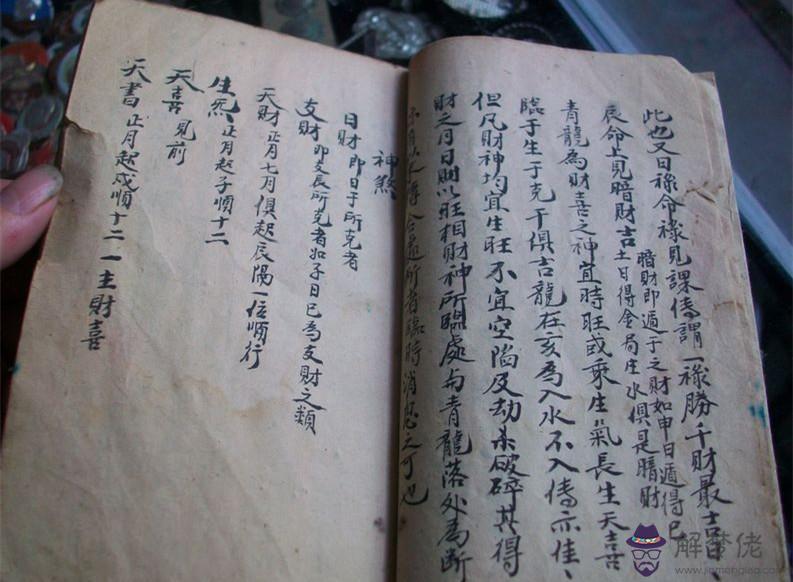 此也又曰祿命祿見課傳謂一祿勝千財最吉日
辰命上見暗財吉
暗財即遁干之財如申日遁得巳
土日得金局庄水俱是暗財
青龍為財喜之神宜時旺或乘生氣長生天喜
臨干生干克干俱吉龍在亥為入水不入傳亦佳、
但凡財神均宜生旺不宜空陷及劫杀破碎其得
財之月日則以旺相財神所臨處与青龍落处為断
所者臨時消息之可也
神煞
日財即日干所克者
支財即支辰所克者如子日巳為支財之類
天財正月七月俱起辰陽一位順行
生炁正月起子順十二
天喜見前
天書正月起戍順十二一主財喜
解梦佬
www.jiemenglao.com